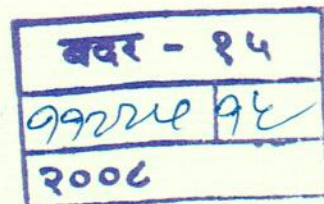 बदर - १५
११२२५ १५
२००८